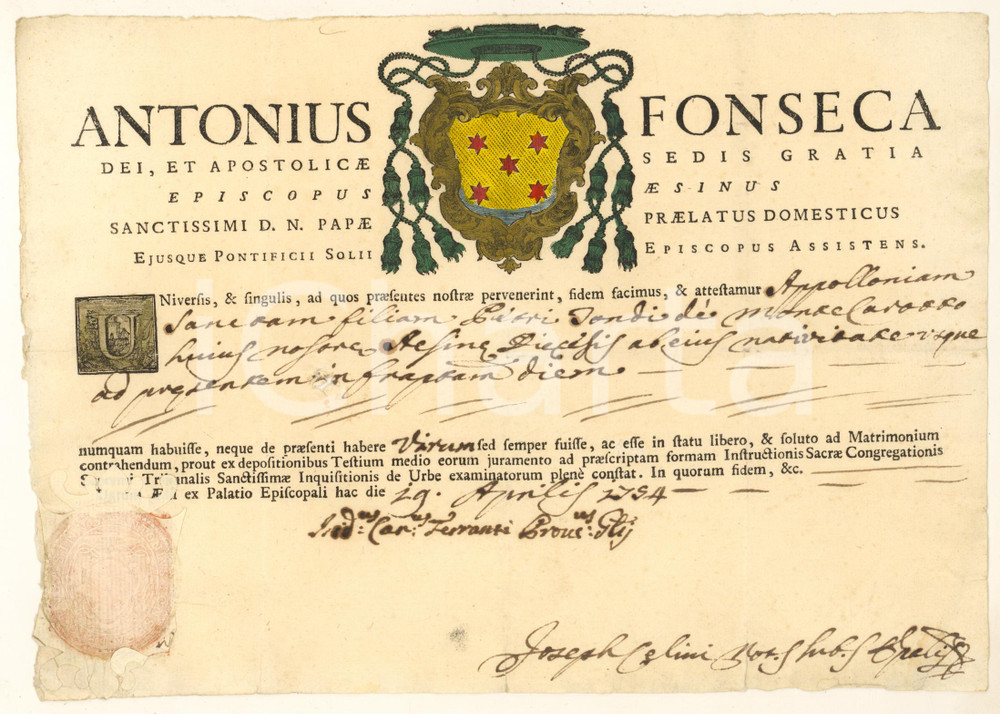 ANTONIUS FONSECA
DEI, ET APOSTOLICÆ SEDIS GRATIA
EPISCOPUS ÆSINUS
SANCTISSIMI D. N. PAPÆ PRÆLATUS DOMESTICUS
EJUSQUE PONTIFICII SOLII EPISCOPUS ASSISTENS.
UNiversis, & singulis, ad quos præsentes nostræ pervenerint, fidem facimus, & attestamur Appolloniam
Sanctam filiam Petri Tondi de Monte Carotto
huius nostre Aesine Diecesis ab eius nativitate usque
ad presentem infraptam diem
numquam habuisse, neque de præsenti habere Virum sed semper fuisse, ac esse in statu libero, & soluto ad Matrimonium
contrahendum, prout ex depositionibus Testium medio eorum juramento ad præscriptam formam Instructionis Sacræ Congregationis
Tribunalis Sanctissimæ Inquisitionis de Urbe examinatorum plenè constat. In quorum fidem, &c.
ex Palatio Episcopali hac die 29. Aprilis 1754
Can.us Ferranti
Joseph Celini Not.s Sub.s
iCharta